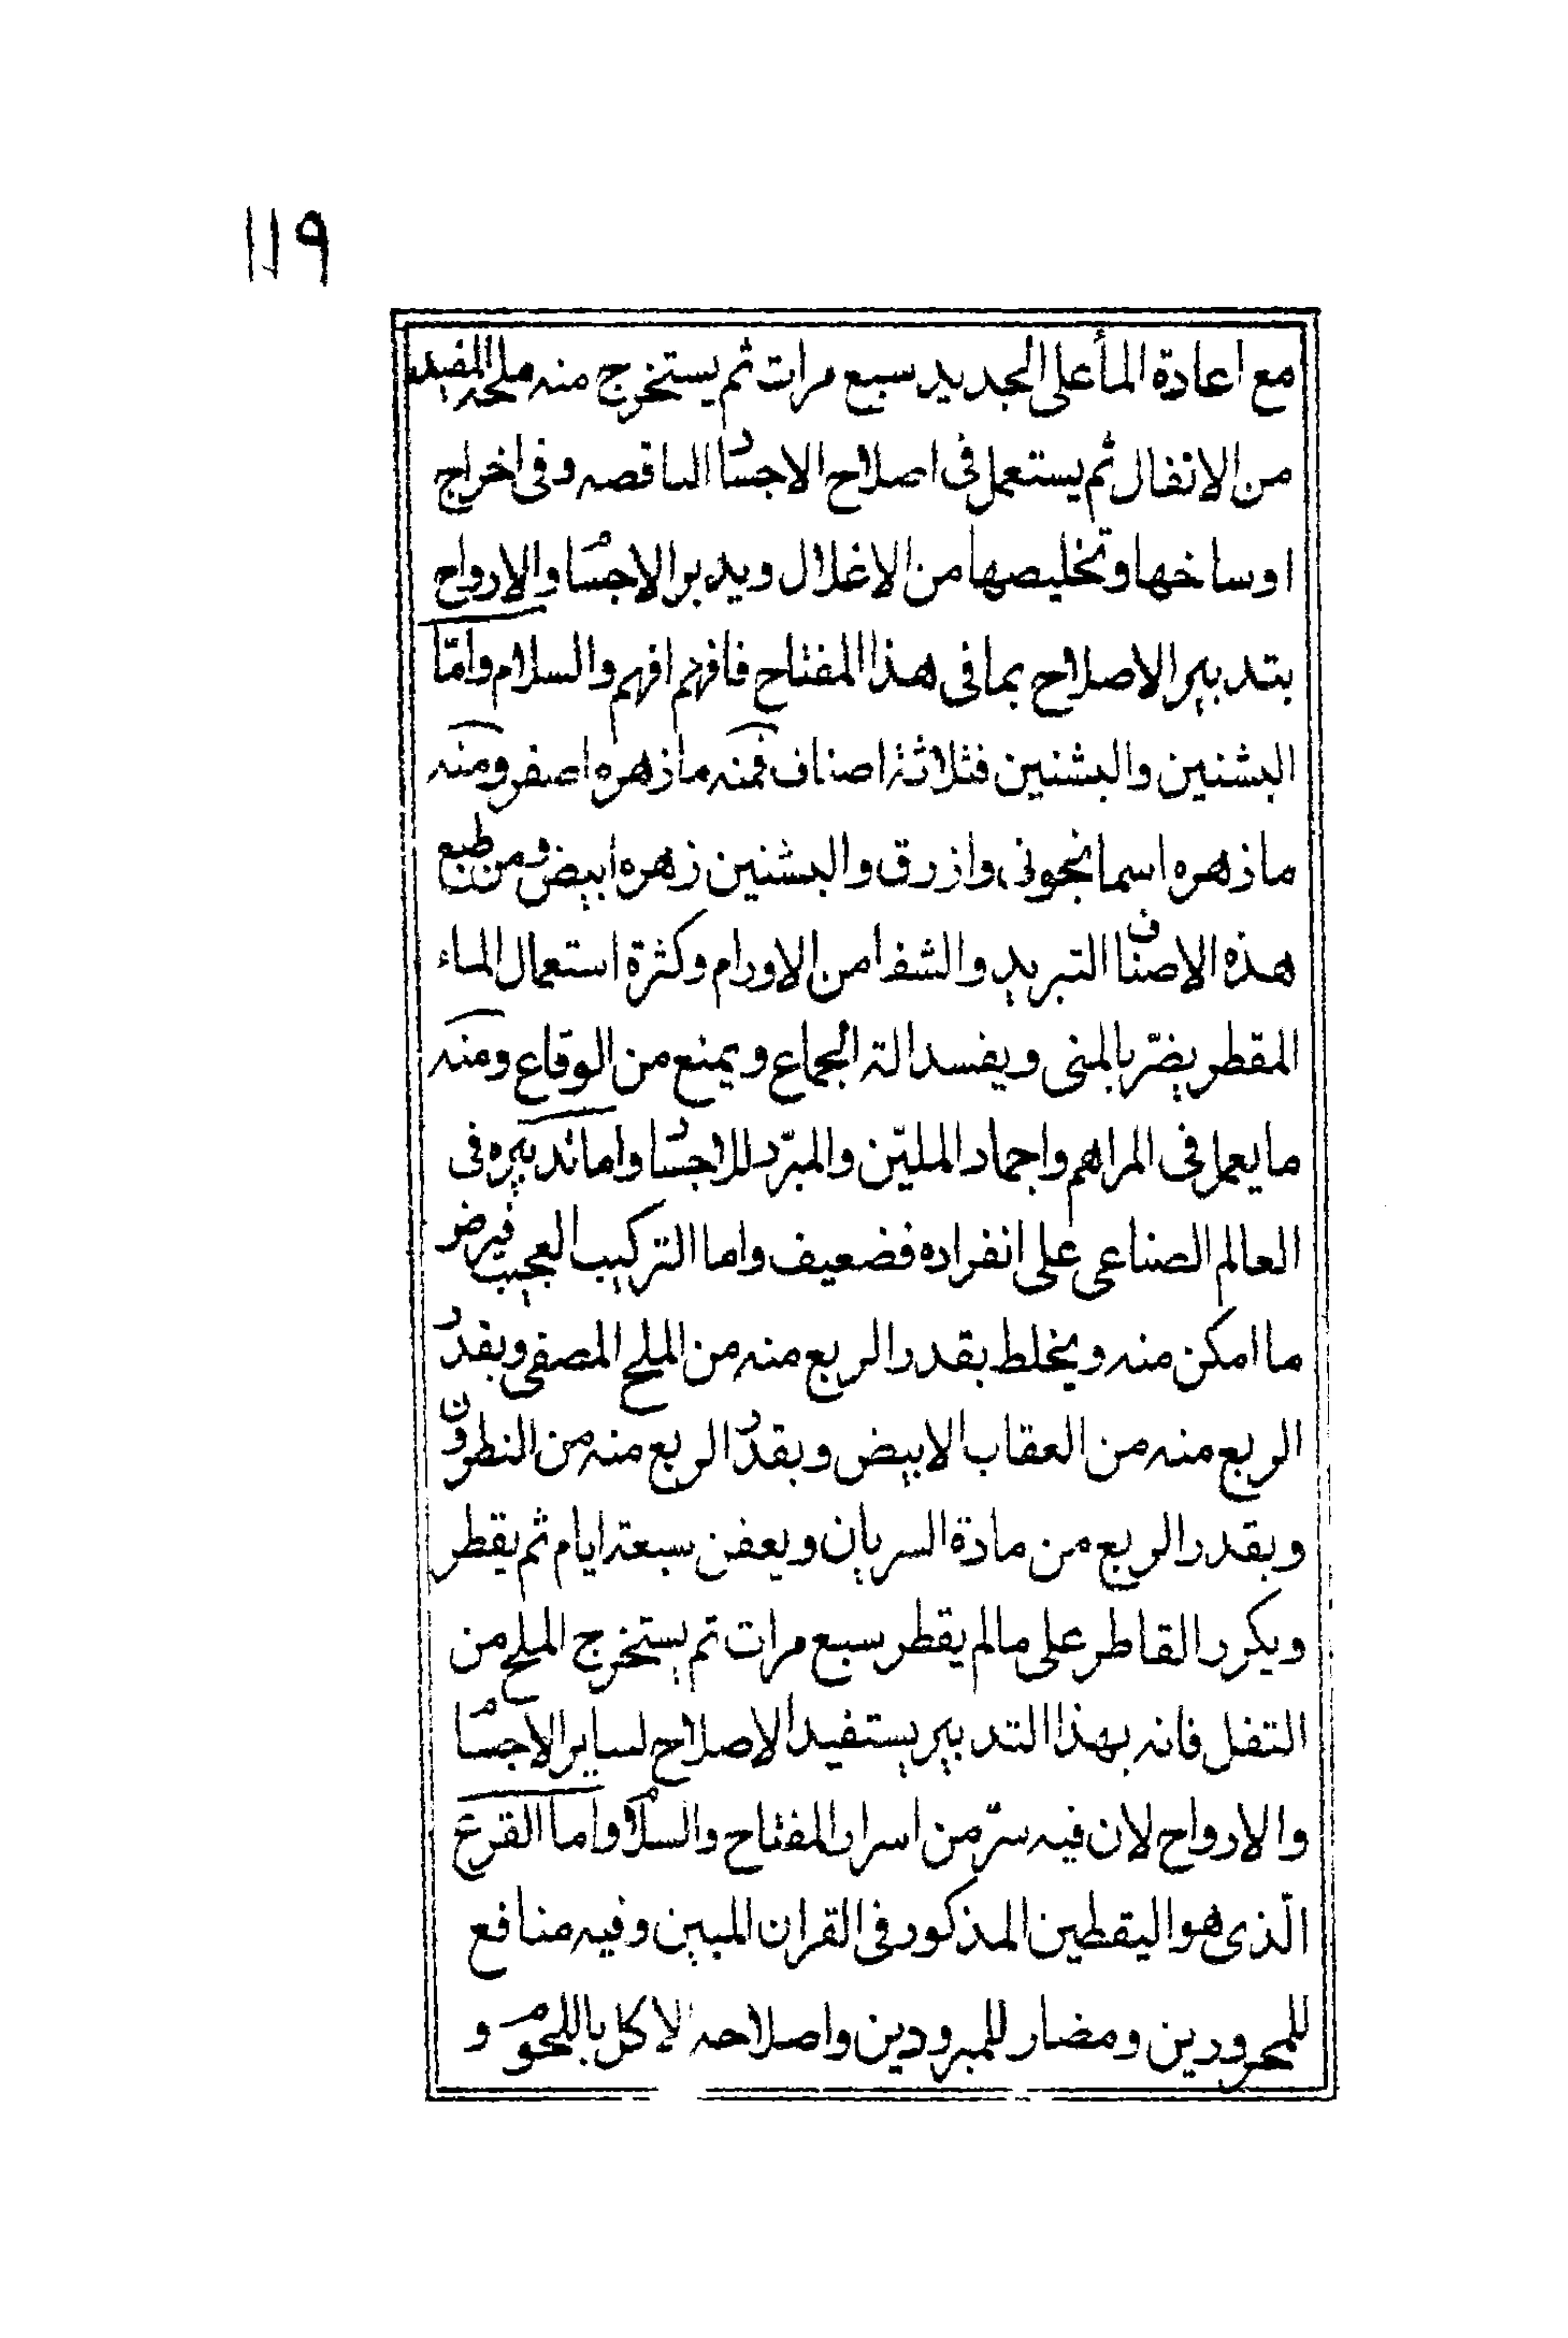 ١١٩
مع اعادة المأ على الجديد سبع مرات ثم يستخرج منه ملحه المفيد
من الانفال ثم يستعمل فى اصلاح الاجساد الناقصه وفى اخراج
اوساخها وتخليصها من الاغلال ويدبر الاجسام والارواح
بتدبير الاصلاح بما فى هذا المفتاح فافهم افهم والسلام وامّا
البشنين والبشنين فثلاثة اصناف فمنه ما زهره اصفر ومنه
ما زهره اسمانجونى وازرق والبشنين زهره ابيض ومن طبع
هذه الاصناف التبريد والشفا من الاورام وكثرة استعمال الماء
المقطر يضرّ بالمنى ويفسد الة الجماع ويمنع من الوقاع ومنه
ما يعمل فى المراهم واجماد المليّن والمبرّد للاجساد واما تدبيره فى
العالم الصناعى على انفراده فضعيف واما التركيب العجيب فيرض
ما امكن منه ويخلط بقدر الربع منه من الملح المصفى وبقدر
الربع منه من العقاب الابيض وبقدر الربع منه من النطرون
وبقدر الربع من مادة السريان ويعفن سبعة ايام ثم يقطر
ويكرر القاطر على مالم يقطر سبع مرات تم يستخرج الملح من
التفل فانه بهذا التدبير يستفيد الاصلاح لساير الاجسام
والارواح لان فيه سرّ من اسرار المفتاح والسلام واما القرع
الّذى هو اليقطين المذكور فى القران المبين وفيه منافع
للمحرورين ومضار للمبرودين واصلاحه الاكل باللحوم و